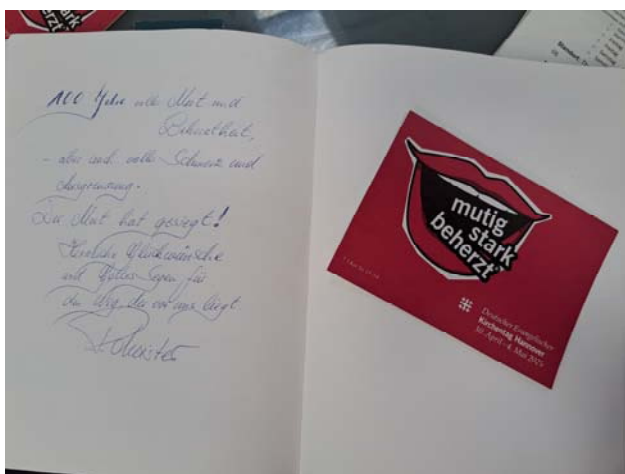 100 Jahre voller Mut und
Beharrtheit,
- aber auch voller Schmerz und
Ausgrenzung.
Der Mut hat gesiegt!
Herzliche Glückwünsche
und Gottes Segen für
den Weg, der vor uns liegt
mutig
stark
beherzt
Deutscher Evangelischer
Kirchentag Hannover
30. April – 4. Mai 2025